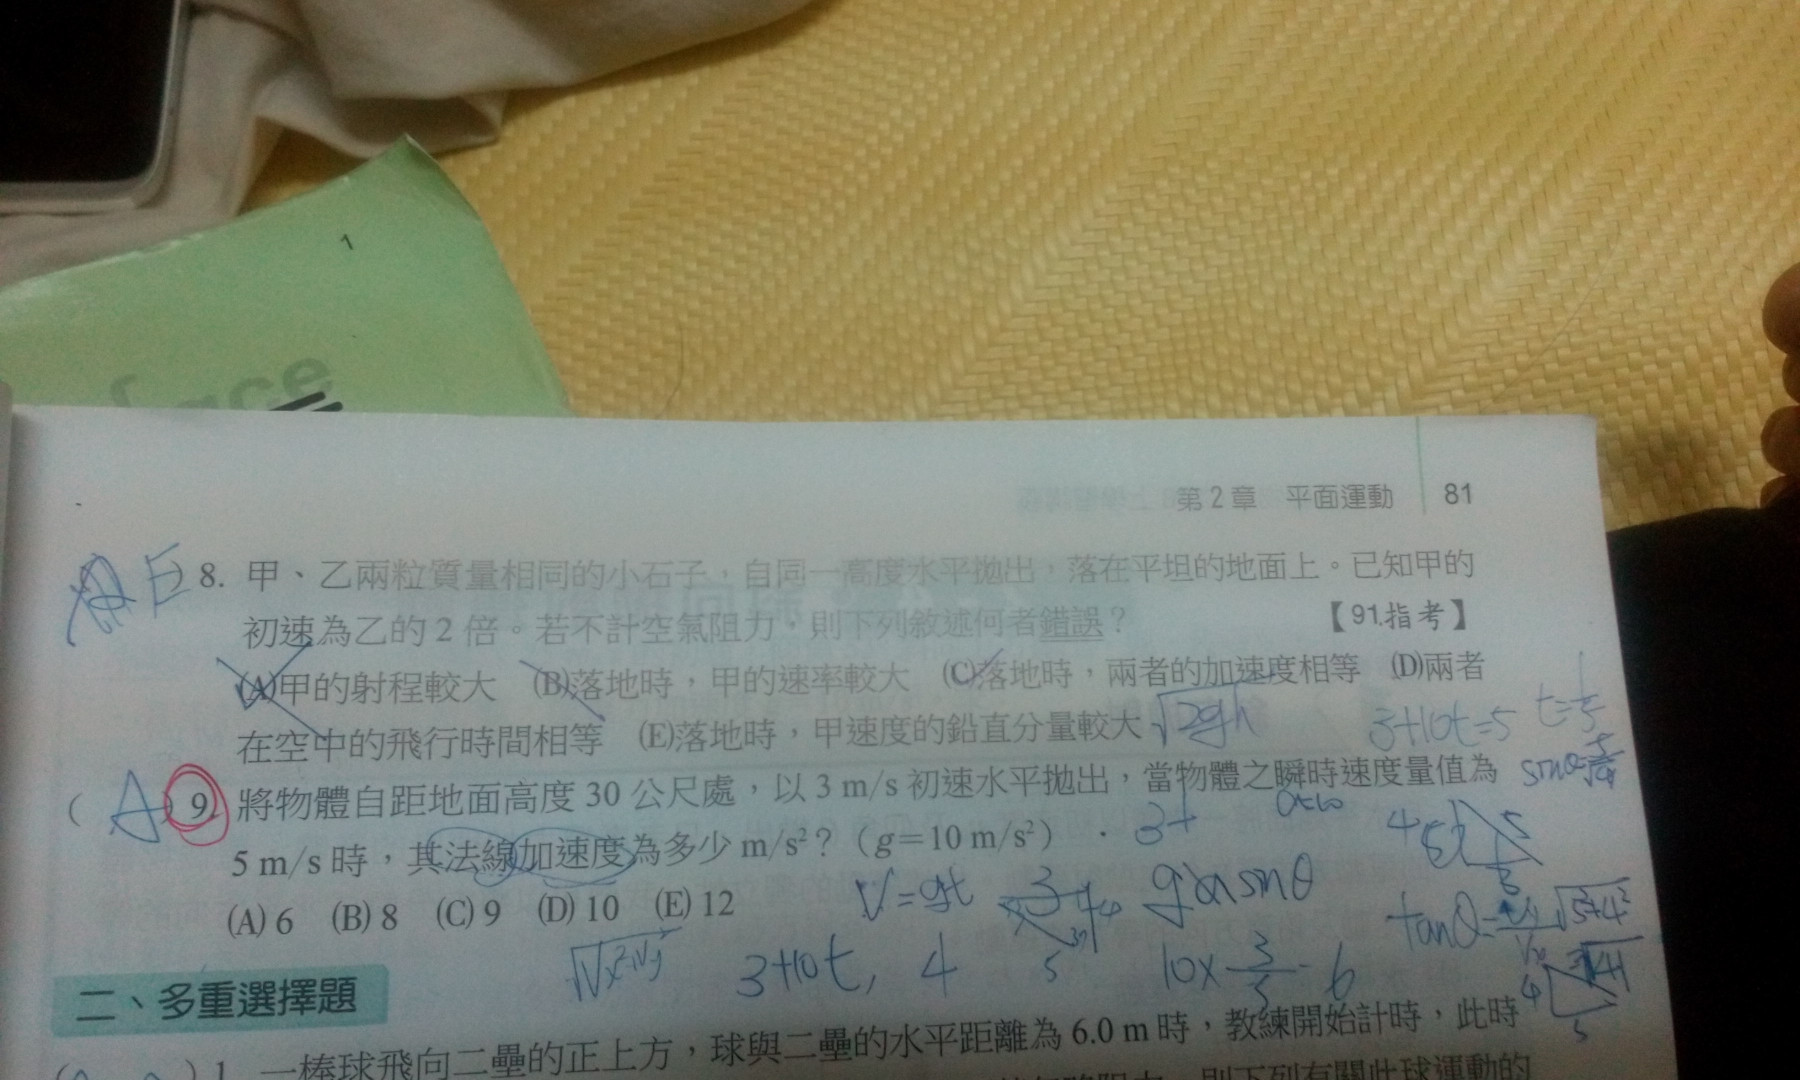 1
face
第2章 平面運動 81
E 8. 甲、乙兩粒質量相同的小石子，自同一高度水平拋出，落在平坦的地面上。已知甲的
初速為乙的2倍。若不計空氣阻力，則下列敘述何者錯誤？ 【91.指考】
(A)甲的射程較大 (B)落地時，甲的速率較大 (C)落地時，兩者的加速度相等 (D)兩者
在空中的飛行時間相等 (E)落地時，甲速度的鉛直分量較大 √2gh 3+10t=5
( A ) 9. 將物體自距地面高度30公尺處，以3 m/s初速水平拋出，當物體之瞬時速度量值為
5 m/s時，其法線加速度為多少m/s²？（g＝10 m/s²）
(A) 6 (B) 8 (C) 9 (D) 10 (E) 12
V=gt 3 4 5
3+10t, 4
10×3/5=6
二、多重選擇題
) 1. 一棒球飛向二壘的正上方，球與二壘的水平距離為6.0 m時，教練開始計時，此時
則下列有關此球運動的